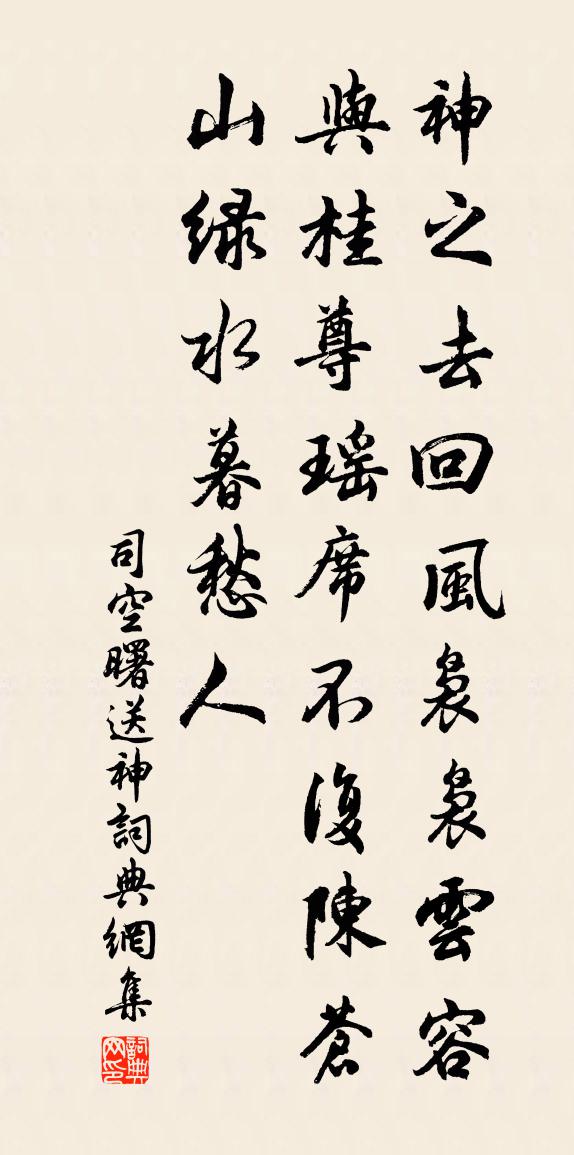 神之去回風裊裊雲容
與桂尊瑶席不復陳蒼
山緑水暮愁人
司空曙送神詞典網集
詞典网印